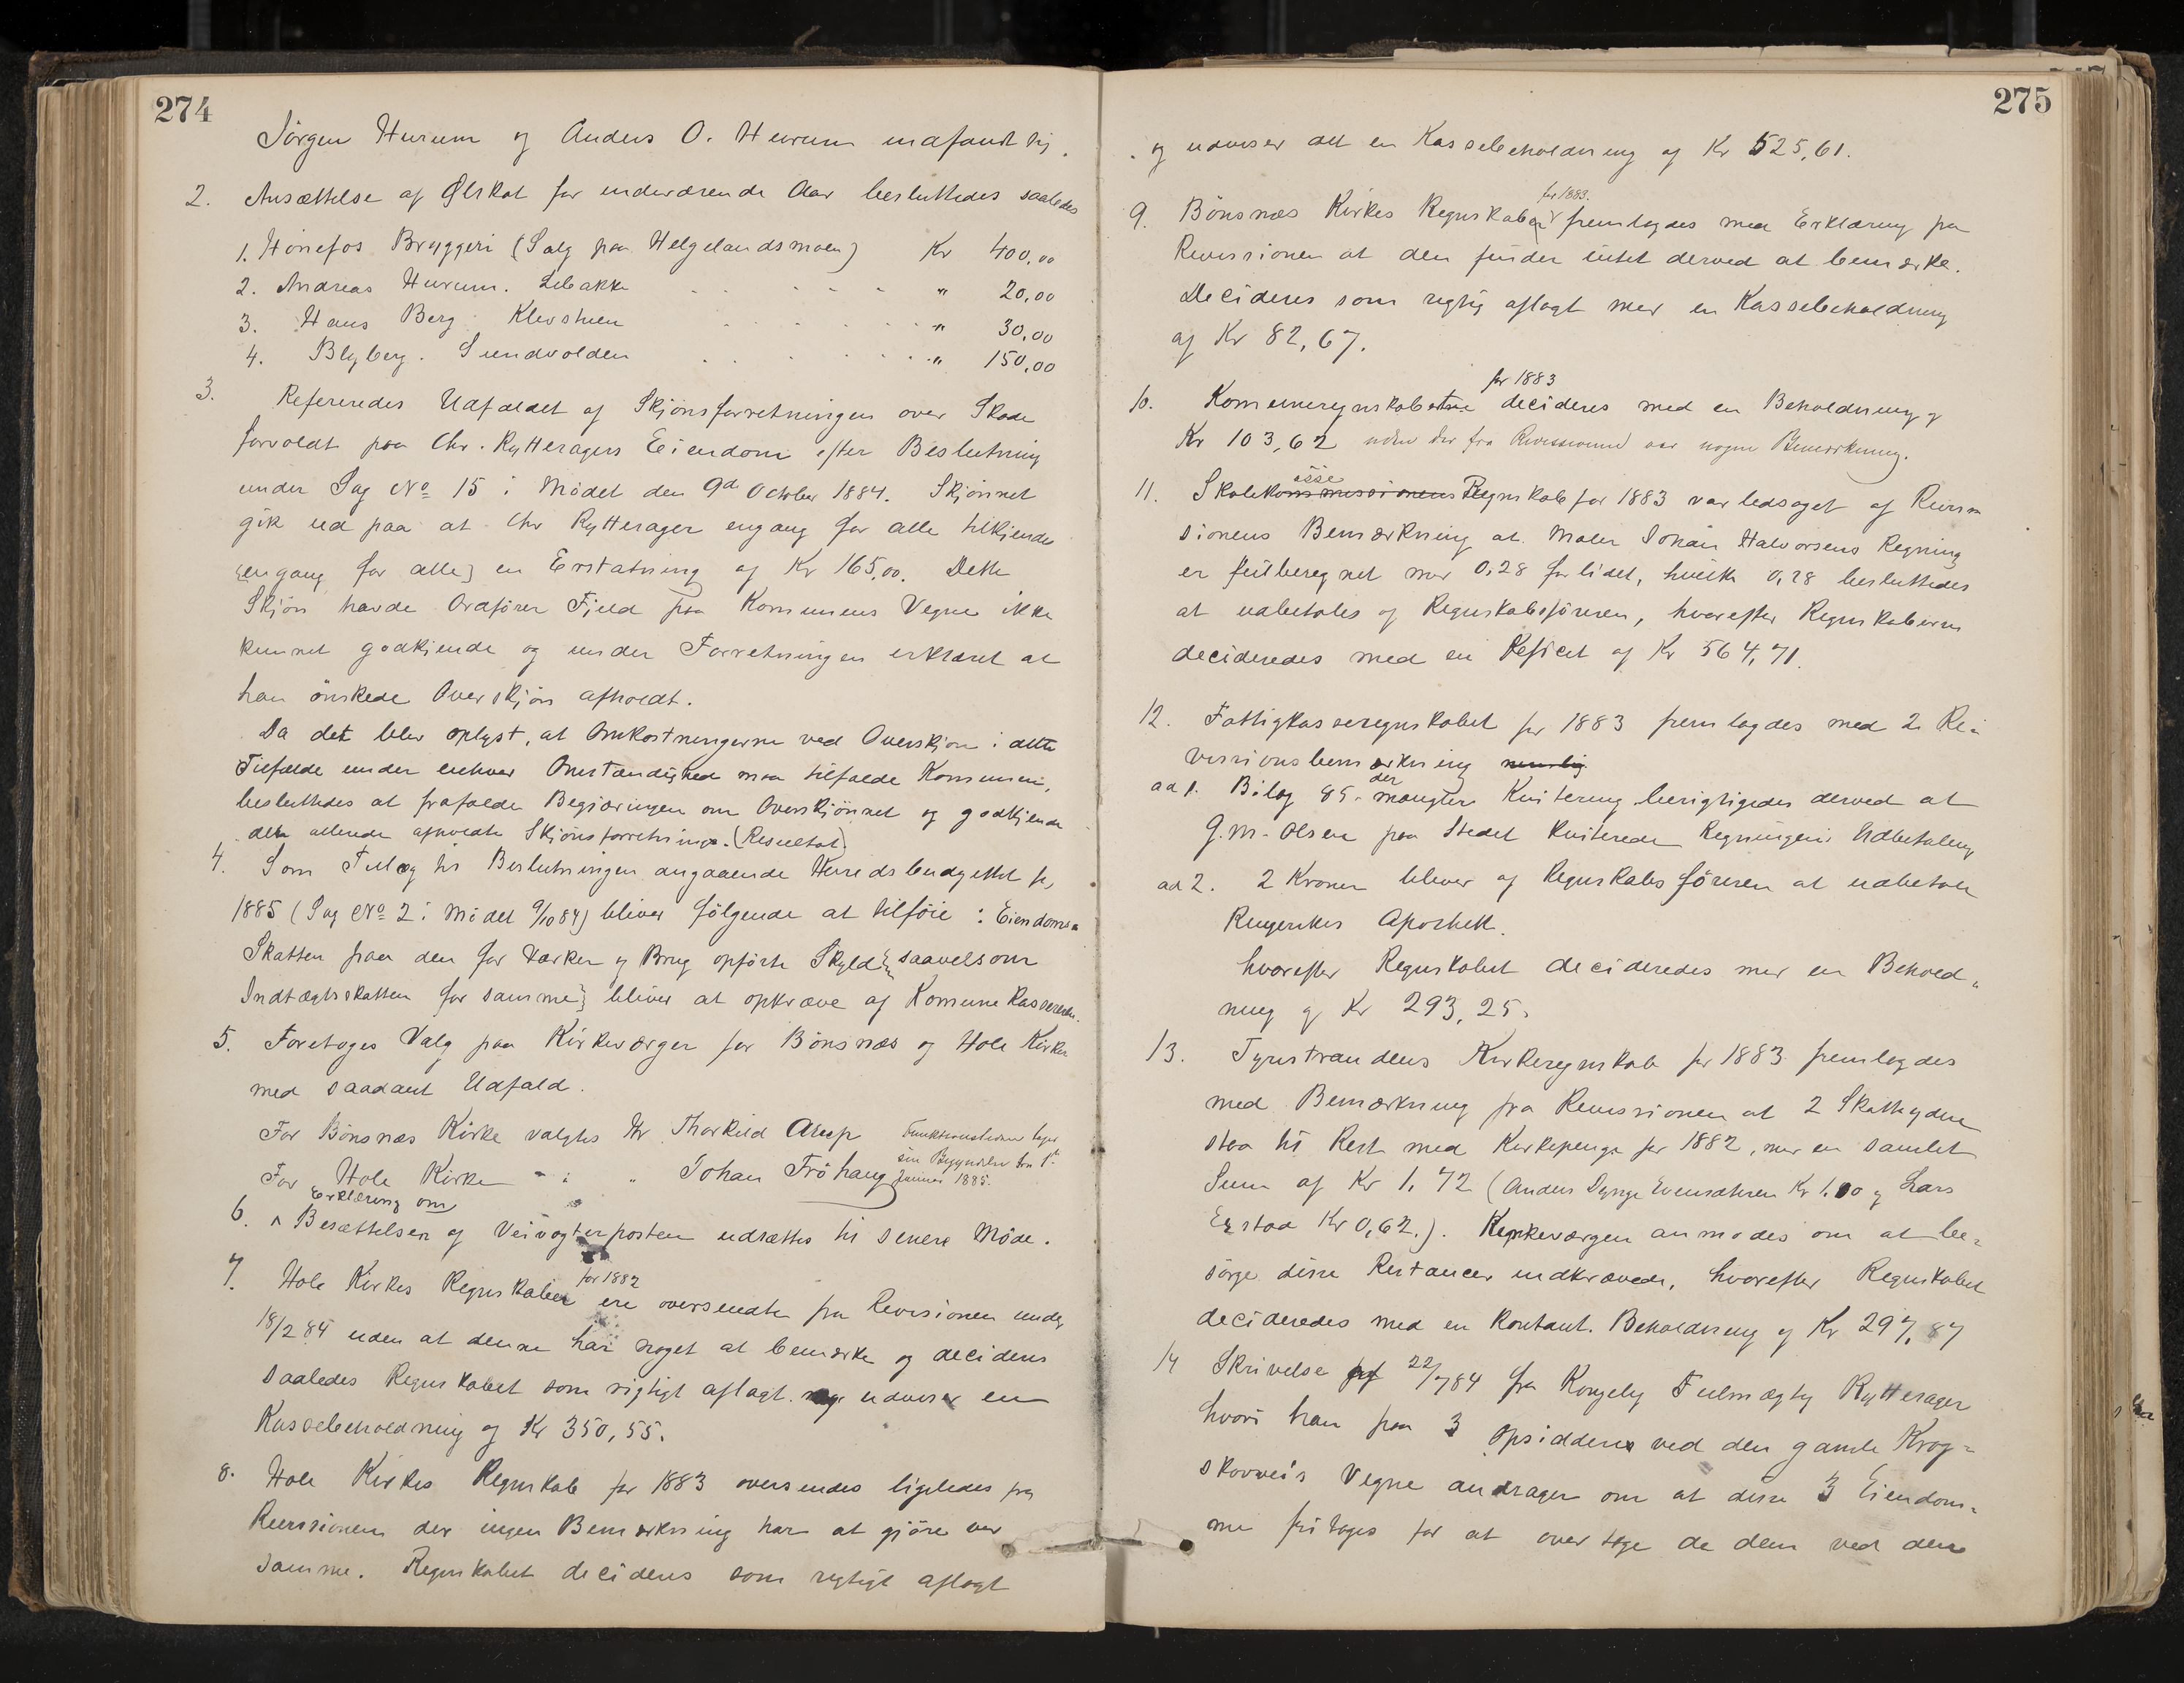 274
Jörgen Hurum og Anders O. Hurum indfandt sig.
2. Ansættelse af Ölskat for indeværende Aar besluttedes saaledes
1. Hönefos Bryggeri (Salg paa Helgelandsmoen) Kr 400,00
2. Andreas Hurum. Libakke " 20,00
3. Hans Berg. Klevstuen " 30,00
4. Blyberg. Sundvolden " 150,00
3. Refereredes Udfaldet af Skjönsforretningen over Skade
forvoldt paa Chr. Rytteragers Eiendom efter Beslutning
under Sag No 15 i Mödet den 9de October 1884. Skjönnet
gik ud paa at Chr Rytterager engang for alle tilkjendes
(engang for alle) en Erstatning af Kr 165,00. Dette
Skjön havde Ordförer Fjeld paa Komunens Vegne ikke
kunnet godkjende og under Forretningen erklæret at
han önskede Overskjön afholdt.
Da det blev oplyst, at Omkostningerne ved Overskjön i dette
Tilfælde under enhver Omstændighed maa tilfalde Komunen,
besluttedes at frafalde Begjæringen om Overskjönnet og godkjende
den allerede afholdte Skjönsforretnings. (Resultat)
4. Som Tillæg til Beslutningen angaaende Herredsbudgettet for
1885 (Sag No 2 i Mödet 9/10 84) bliver fölgende at tilföie: Eiendoms=
Skatten paa den for Værker og Brug opförte Skyld saavelsom
Indtægtsskatten for samme bliver at opkræve af Komunekassereren.
5. Foretoges Valg paa Kirkeværger for Bönsnæs og Hole Kirker
med saadant Udfald.
For Bönsnæs Kirke valgtes Hr Thorkild Aarp Funktionstiden tager
For Hole Kirke - : " Johan Fröhaug sin Begyndelse fra 1ste
Januar 1885.
Erklæring om
6. ^ Besættelsen af Veivogterposten udsættes til senere Möde.
for 1882
7. Hole Kirkes Regnskaber ere oversendte fra Revisionen under
18/2 84 uden at denne har noget at bemærke og decideres
saaledes Regnskabet som rigtigt aflagt. og udviser en
Kassebeholdning af Kr 350,55.
8. Hole Kirkes Regnskab for 1883 oversendes ligeledes fra
Revisionen der ingen Bemærkning har at gjöre ved
samme. Regnskabet decideres som rigtigt aflagt
275
og udviser det en Kassebeholdning af Kr 525,61.
for 1883.
9. Bönsnæs Kirkes Regnskaber fremlagdes med Erklæring fra
Revisionen at den finder intet derved at bemærke.
Decideres som rigtig aflagt med en Kassebeholdning
af Kr 82,67.
for 1883
10. Komuneregnskaberne decideres med en Beholdning af
Kr 103,62 uden der fra Revisionen var nogen Bemærkning.
asse
11. Skolekommissionens Regnskab for 1883 var ledsaget af Revi=
sionens Bemærkning at Maler Johan Halvorsens Regning
er feilberegnet med 0,28 for lidet, hvilke 0,28 besluttedes
at udbetales af Regnskabsföreren, hvorefter Regnskaberne
decideredes med en Deficit af Kr 564,71.
12. Fattigkasseregnskabet for 1883 fremlagdes med 2 Re=
visionsbemærkning nemlig
der
ad 1. Bilag 85. mangler Kvitering berigtigedes derved at
G. M. Olsen paa Stedet kviterede Regningens Udbetaling
ad 2. 2 Kroner bliver af Regnskabsföreren at udbetale
Ringerikes Apothek.
hvorefter Regnskabet decideredes med en Behold=
ning af Kr 293,25.
13. Tyristrandens Kirkeregnskab for 1883 fremlagdes
med Bemærkning fra Revisionen at 2 Skatteydere
staa til Rest med Kirkepenge for 1882, med en samlet
Sum af Kr 1,72 (Anders Dynge Evensæteren Kr 1.10 og Lars
Egstad Kr 0,62.). Kirkeværgen anmodes om at be=
sörge disse Restancer indkrævede, hvorefter Regnskabet
decideredes med en kontant. Beholdning af Kr 297,87
14 Skrivelse af 22/7 84 fra Kongelig Fulmægtig Rytterager
hvori han paa 3 Opsiddere ved den gamle Krog=
skovveis Vegne andrager om at disse 3 Eiendom=
me fritages for at overtage de dem ved den